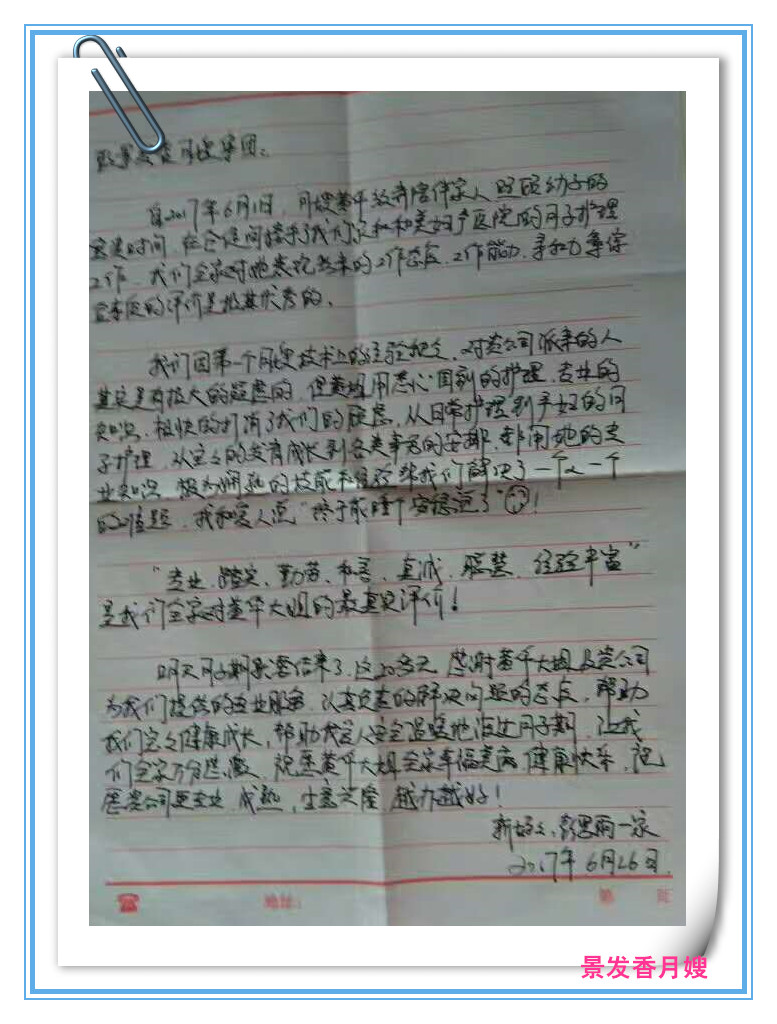 致景发香月嫂集团:
自2017年6月1日,月嫂黄华放弃陪伴家人照顾幼子的
宝贵时间,在仓促间接手了我们京和和美妇产医院的月子护理
工作,我们全家对她表现出来的工作态度、工作能力、亲和力等综
合素质的评价是极其优秀的。
我们因第一个月嫂技术上的经验,对贵公司派来的人
其实是有极大的疑虑的,但黄姐用悉心周到的护理、专业的
知识,极快的打消了我们的顾虑,从日常护理到产妇的月
子护理,从宝宝的发育成长到各类事宜的安排,都用她的专
业知识、极为娴熟的技能和经验帮我们解决了一个又一个
的难题,我和爱人说“终于能睡个安稳觉了”!
“专业、踏实、勤劳、和善、真诚、聪慧、经验丰富”
是我们全家对黄华大姐的最真实评价!
明天月子期就要结束了,这20多天,感谢黄华大姐及贵公司
为我们提供的专业服务、认真负责的解决问题的态度,帮助
我们宝宝健康成长,帮助我家人安全温暖地度过月子期,让我
们全家万分感激,祝愿黄华大姐全家幸福美满、健康快乐,祝
愿贵公司更专业、成熟,生意兴隆,越办越好!
新妈妈:彭思丽一家
2017年6月26日
地址:
第 页
景发香月嫂